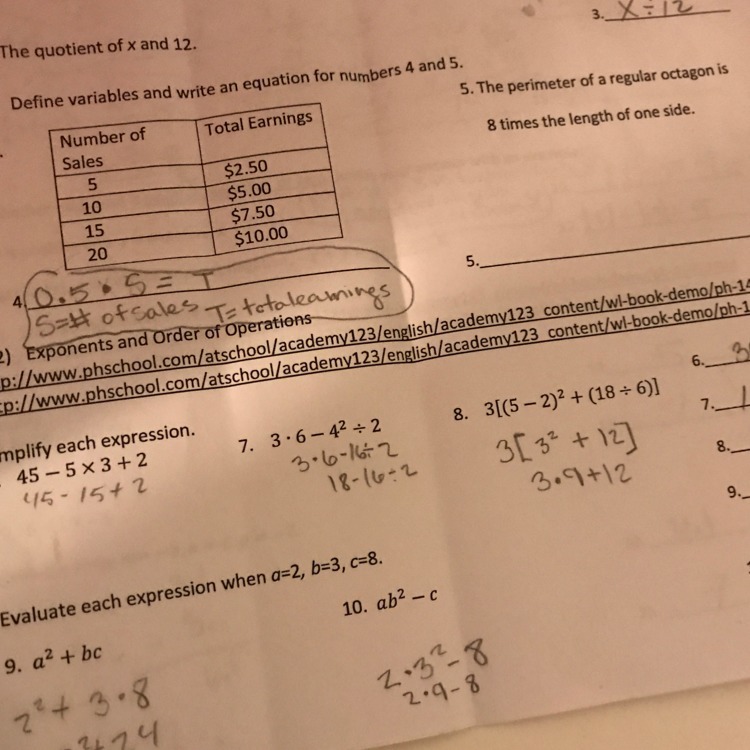 3. X ÷ 12
The quotient of x and 12.
Define variables and write an equation for numbers 4 and 5.
Number of Sales Total Earnings
5 $2.50
10 $5.00
15 $7.50
20 $10.00
4. 0.5 • S = T
S=# of sales T= total earnings
5. The perimeter of a regular octagon is
8 times the length of one side.
5.
2) Exponents and Order of Operations
p://www.phschool.com/atschool/academy123/english/academy123_content/wl-book-demo/ph-14
tp://www.phschool.com/atschool/academy123/english/academy123_content/wl-book-demo/ph-1
mplify each expression.
45 – 5 × 3 + 2
45 - 15 + 2
7. 3 · 6 – 4² ÷ 2
3•6-16÷2
18-16÷2
8. 3[(5 – 2)² + (18 ÷ 6)]
3[3² + 12]
3•9+12
6. 3
7. 1
8.
9.
Evaluate each expression when a=2, b=3, c=8.
9. a² + bc
2² + 3•8
+ 24
10. ab² – c
2•3²-8
2•9-8